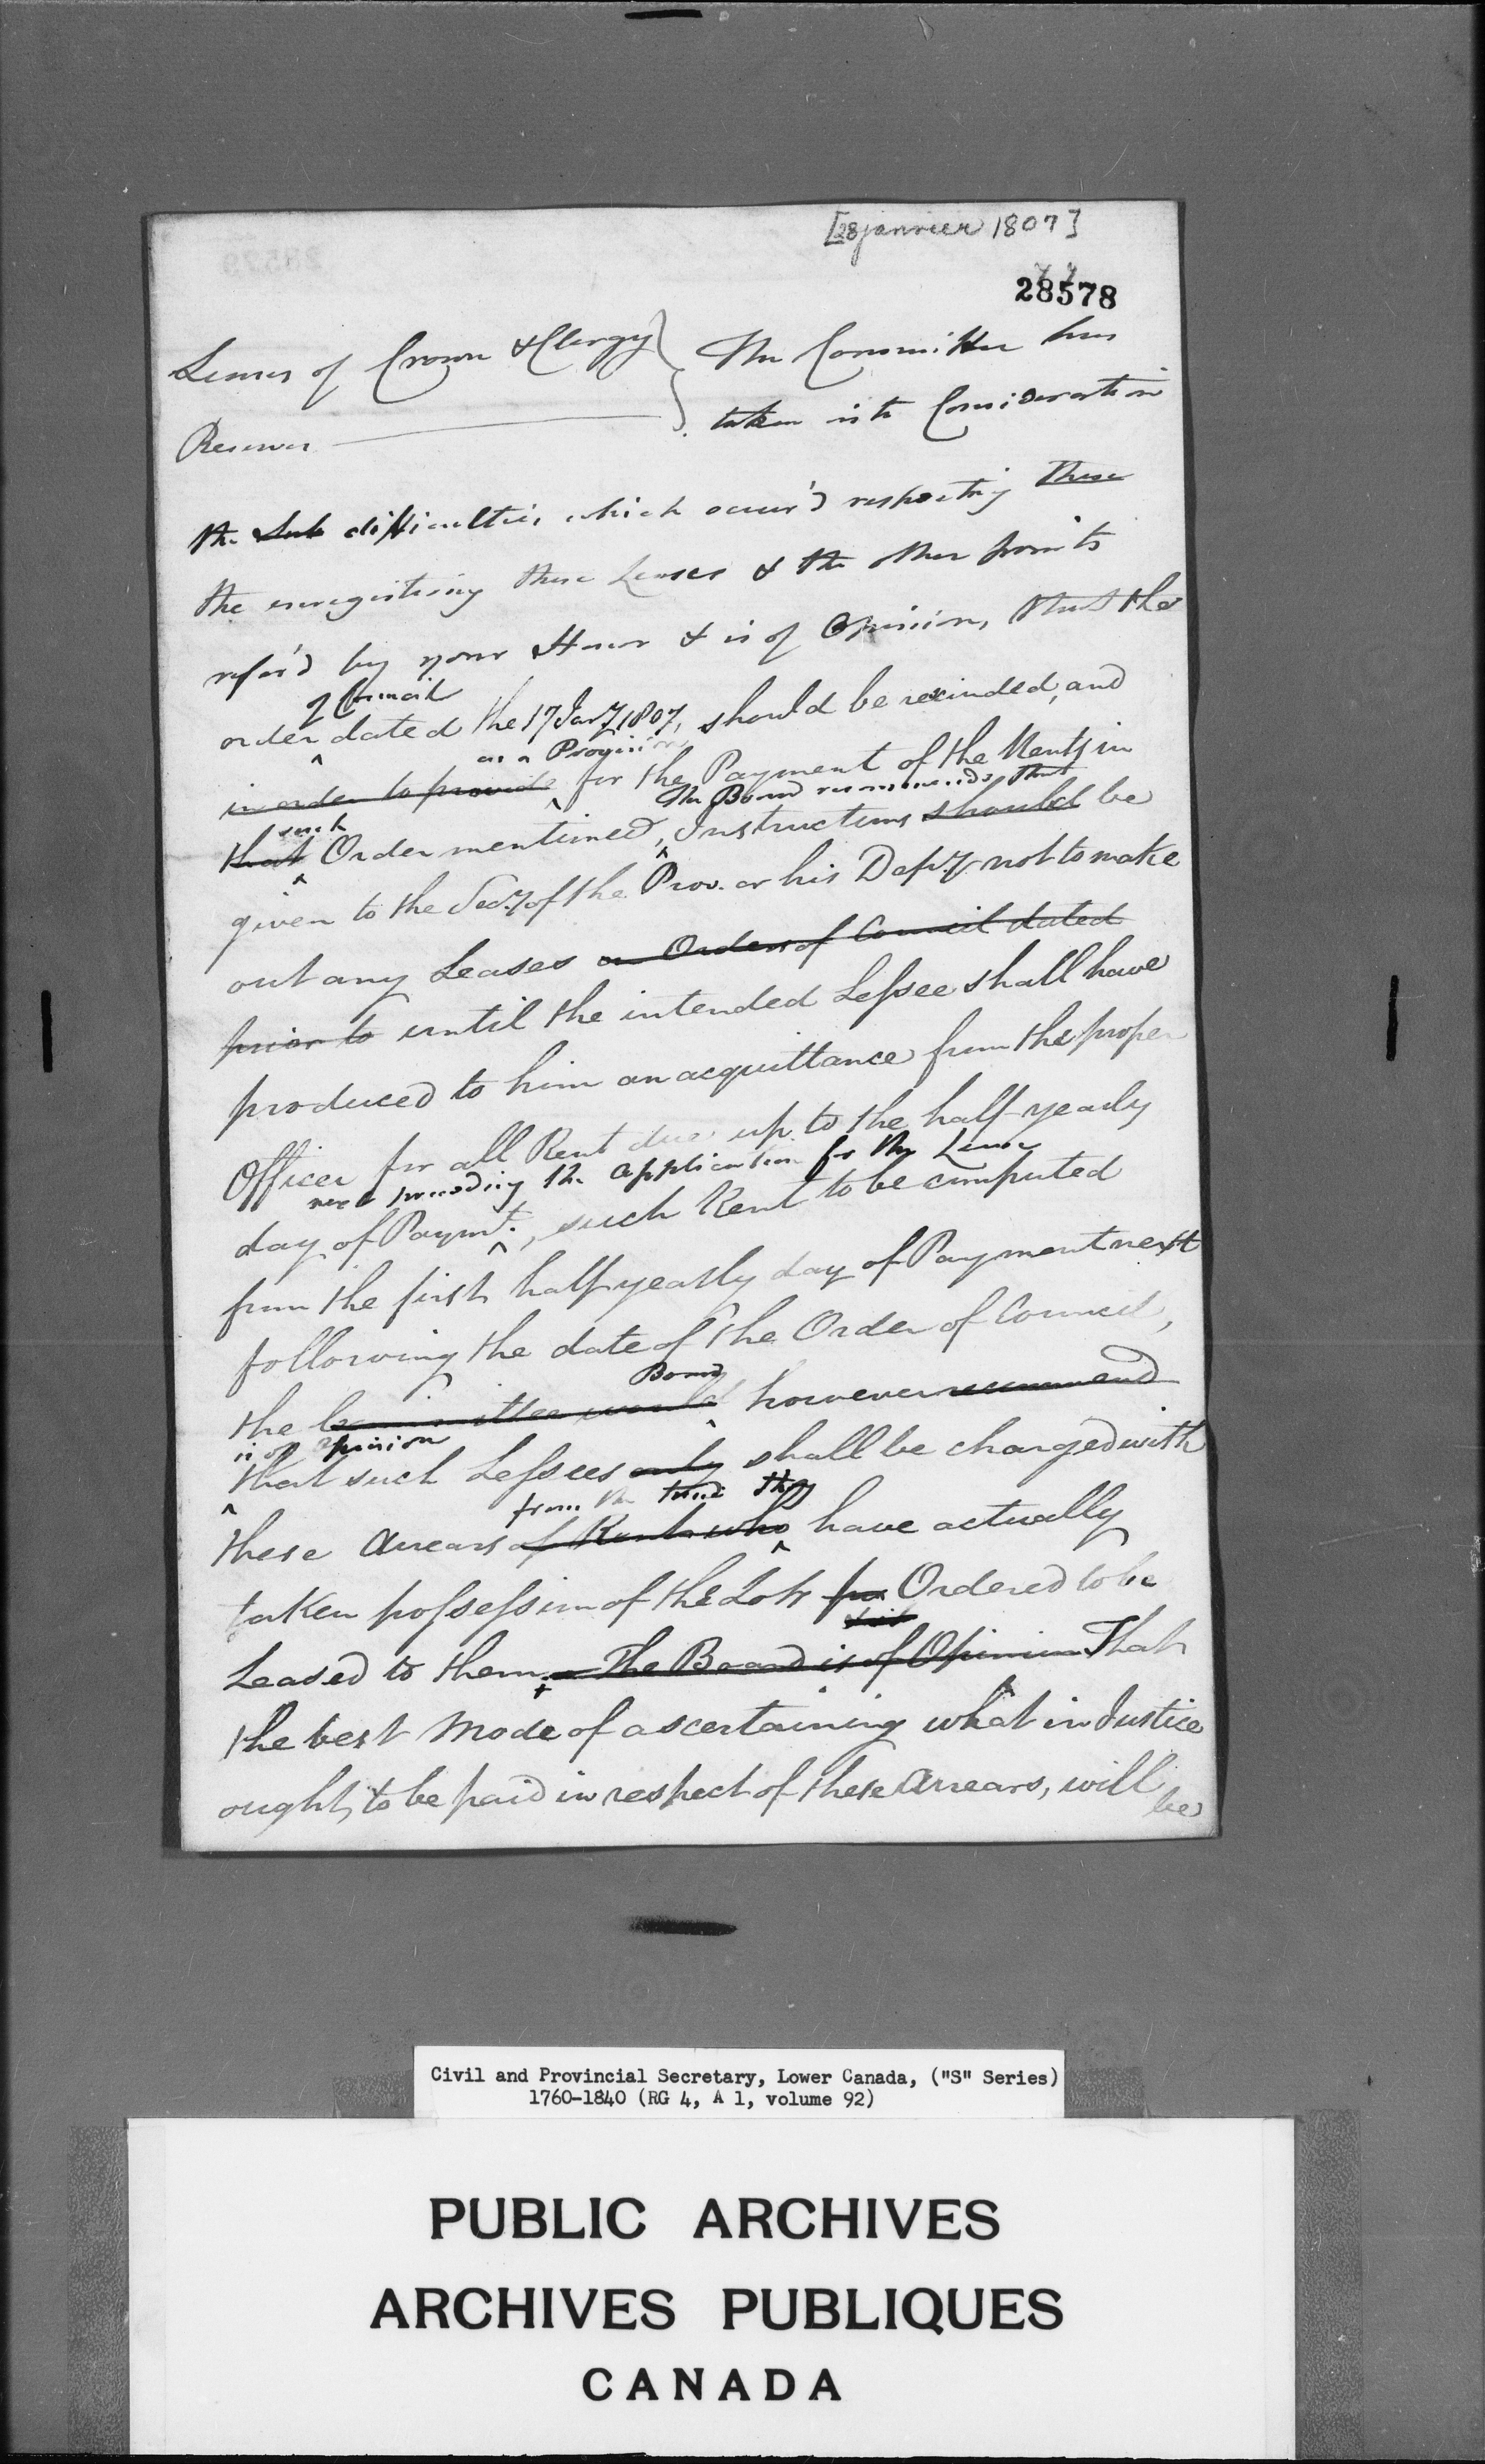 [28 janvier 1807]
28578
Leases of Crown & Clergy } The Committee has
Reserves } taken into Consideration
the difficulties which occur'd respecting these
the enregistering these Leases & the other points
refer'd by your Honor & is of Opinion, that the
of Council
order dated the 17 Jany 1807, should be rescinded, and
as a Provision
in order to provide for the Payment of the Rents in
such The Board recommends that
that Order mentioned, Instructions should be
given to the Secy of the Prov. or his Depy not to make
out any Leases on Orders of Council dated
prior to until the intended Lessee shall have
produced to him an acquittance from the proper
Officer for all Rent due up to the half yearly
next preceding the application for the Lease
day of Paymt., such Rent to be computed
from the first half yearly day of Payment next
following the date of the Order of Council,
Board
the Committee would however recommend
is of opinion
that such Lessees only shall be charged with
from the time they
these Arrears of Rent who have actually
taken possession of the Lots Ordered to be
Leased to them. The Board is of Opinion That
the best Mode of ascertaining what in Justice
ought to be paid in respect of these Arrears, will
be
Civil and Provincial Secretary, Lower Canada, ("S" Series)
1760-1840 (RG 4, A 1, volume 92)
PUBLIC ARCHIVES
ARCHIVES PUBLIQUES
CANADA